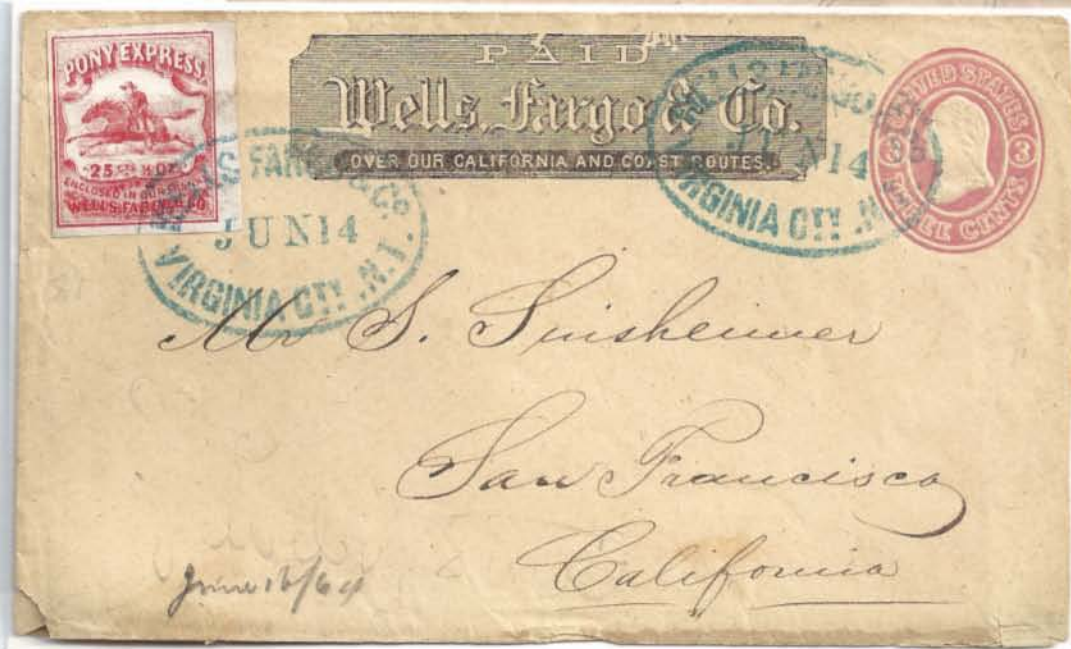 PONY EXPRESS.
25 Cts ½ OZ
ENCLOSED IN OUR FRANKS
WELLS, FARGO & CO
PAID
Wells, Fargo & Co.
OVER OUR CALIFORNIA AND COAST ROUTES.
WELLS, FARGO & Co
JUN 14
VIRGINIA CTY .N.T.
WELLS FARGO & Co
JUN 14
VIRGINIA CTY .N.T.
UNITED STATES
3 3
THREE CENTS
Mr S. Sinsheimer
San Francisco
California
June 16/64